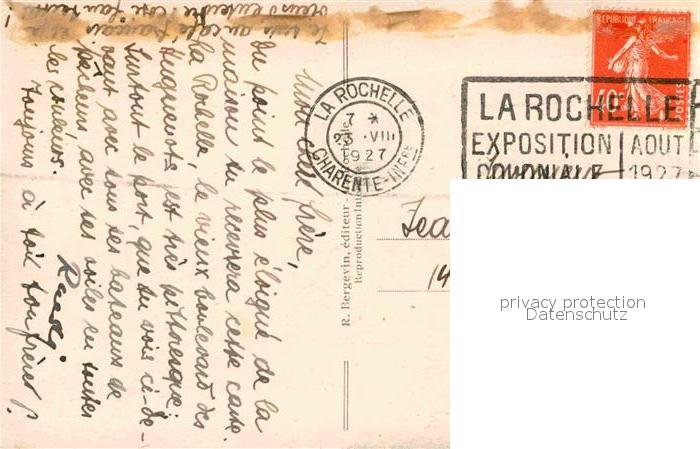 Mon cher frère,
Du point le plus éloigné de la
maison tu recevras cette carte.
La Rochelle, le vieux boulevard des
huguenots est très pittoresque.
Surtout le port, que tu vois ci-de-
vant avec tous ses bateaux de
pêcheurs avec ses voiles en toutes
les couleurs.
Toujours à toi tonfrère!
Je suis au café français
R. Bergevin, éditeur -
Reproduction Int
LA ROCHELLE
7 *
23 -VIII
1927
CHARENTE-INFRE
LA ROCHELLE
EXPOSITION AOUT
COLONIALE 1927
REPUBLIQUE FRANÇAISE
40c
POSTES
Jea
14
privacy protection
Datenschutz